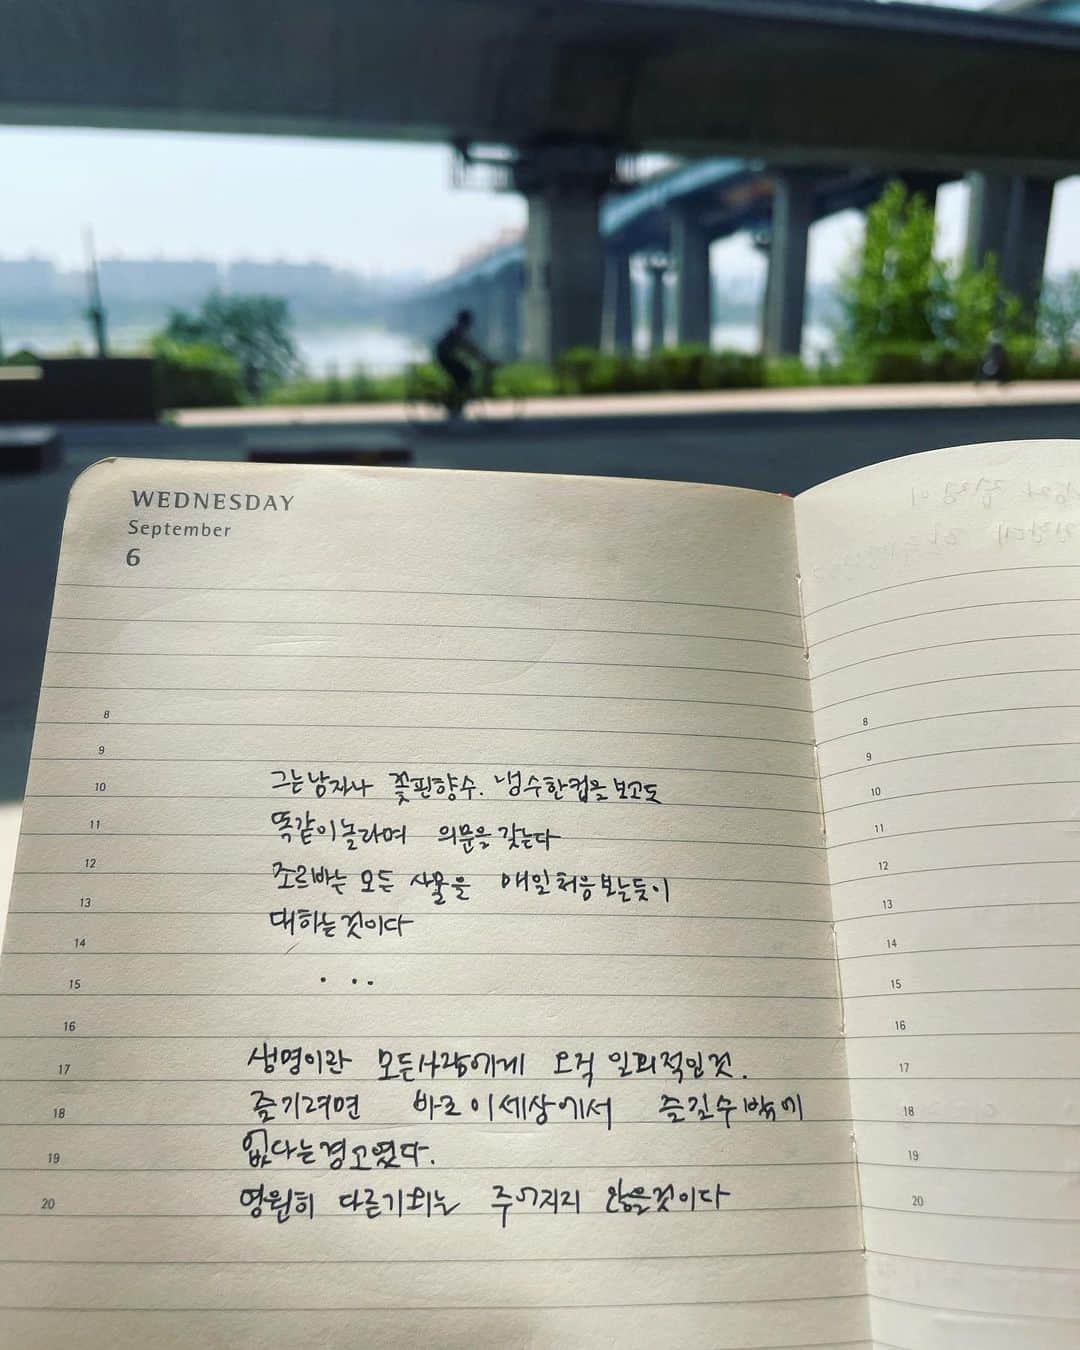 WEDNESDAY
September
6
8
9
10
11
12
13
14
15
16
17
18
19
20
그는 남자나 꽃핀향수. 냉수한컵을 보고도
똑같이 놀라며 의문을 갖는다
조르바는 모든 사물을 매일 처음 보는듯이
대하는것이다
. ..
생명이란 모든사람에게 오직 일회적인것.
즐기려면 바로 이세상에서 즐길수밖에
없다는경고였다.
영원히 다른기회는 주어지지 않을것이다
8
9
10
11
12
13
14
15
16
17
18
19
20